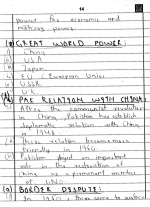 14
power for economic and
military power.
(*) GREAT WORLD POWER:
1 China
2 USA
3 Japan
4 EU (European Union
5 USSR
6 UK
PAK RELATION WITH CHINA:
After the communist revolution
in China, Pakistan has establish
diplomatic relation with China
in 1948
These relation become more
friendly in 1960
Pakistan played an important
role in the entrance of
China as a permanent member
of UNO.
(a) BORDER DISPUTE:
In 1960, there some to